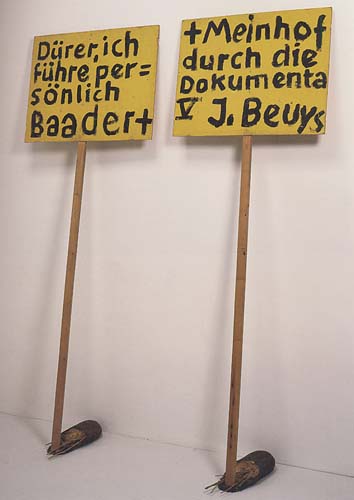 Dürer, ich
führe per=
sönlich
Baader+
+Meinhof
durch die
Dokumenta
V J. Beuys